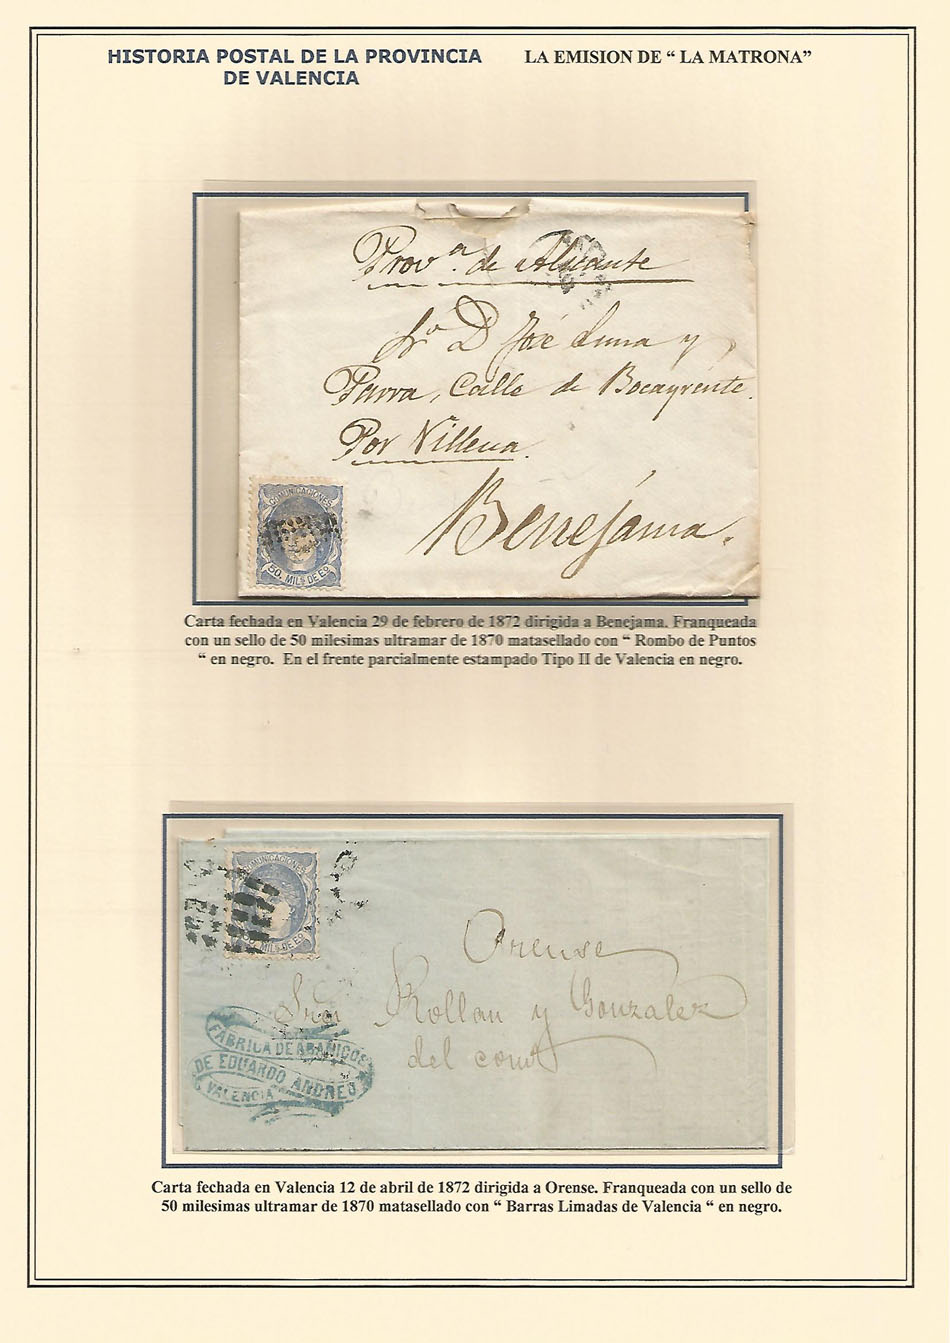 HISTORIA POSTAL DE LA PROVINCIA
DE VALENCIA
LA EMISION DE “ LA MATRONA”
Prov.ª de Alicante
Sr D José Luna y
Parra, Calle de Bocayrente.
Por Villena.
Benejama.
COMUNICACIONES
50. MILS DE Eo.
Carta fechada en Valencia 29 de febrero de 1872 dirigida a Benejama. Franqueada
con un sello de 50 milesimas ultramar de 1870 matasellado con “ Rombo de Puntos
“ en negro. En el frente parcialmente estampado Tipo II de Valencia en negro.
COMUNICACIONES
50. MILS DE Eo.
Orense
Rollan y Gonzalez
del
FABRICA DE ABANICOS
DE EDUARDO ANDREU
VALENCIA
Carta fechada en Valencia 12 de abril de 1872 dirigida a Orense. Franqueada con un sello de
50 milesimas ultramar de 1870 matasellado con “ Barras Limadas de Valencia “ en negro.